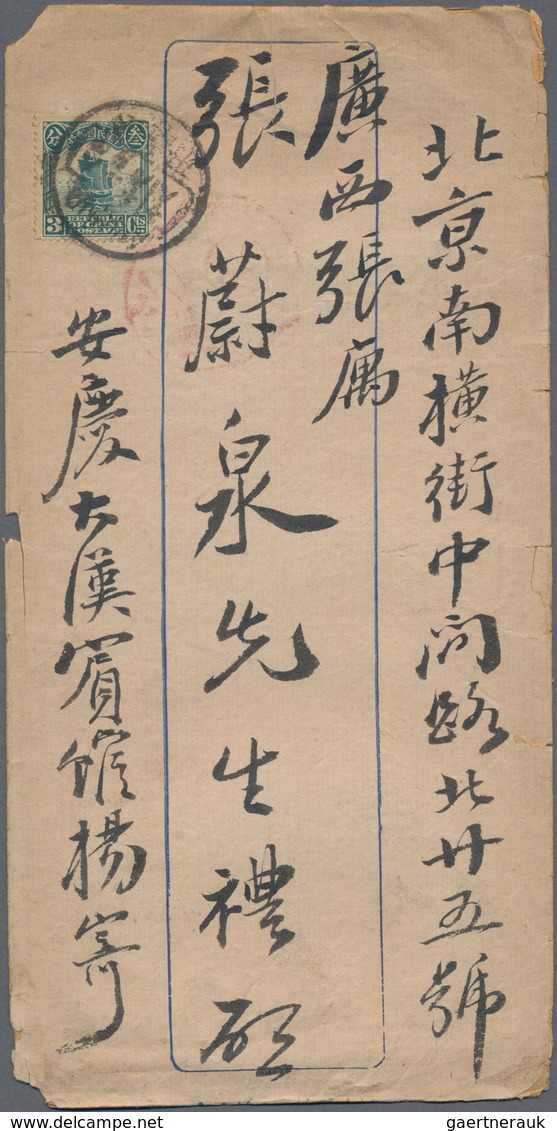 北京南橫街中間路北廿五號
廣西張寓
張蔚泉先生禮啟
安慶大漢賓館楊寄
中華民國郵政
叁
分
3 Cts
REPUBLIC
OF CHINA
POSTAGE
gaertnerauk